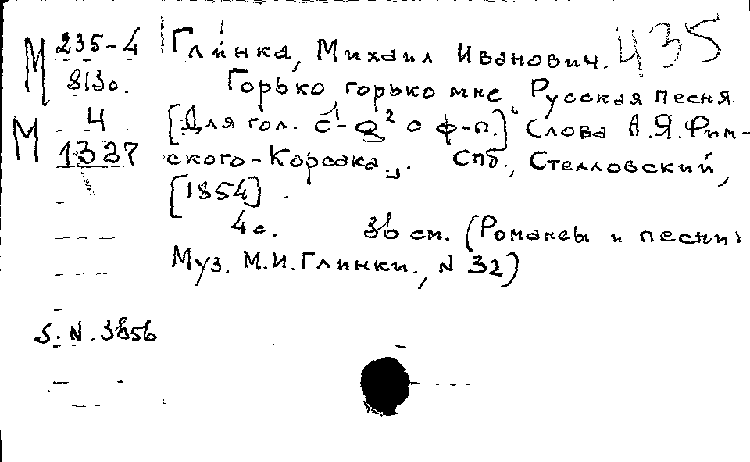 М 235-4 Глинка, Михаил Иванович. 435
813о.
Горько горько мне. Русская песня
М 4 [Для гол. c¹-g² с ф-п.] Слова А.Я.Рим-
1327 ского-Корсака. Спб., Стелловский,
[1854].
4 с. 36 см. (Романсы и песни
Муз. М.И.Глинки., N 32)
S. N. 3856